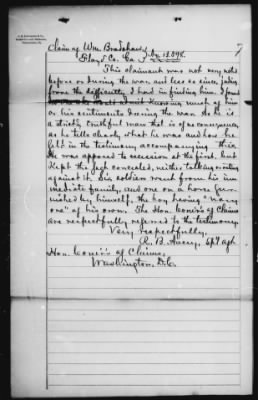 7
Claim of Wm. Bradshaw
Floyd Co. Ga. } No. 13,898.
This claimant was not very noted
before or during the war and less so since, judging
from the difficulty I had in finding him. I found
knowing much of him
or his sentiments during the war. As he is
a strictly truthful man that is of no consequence,
as he tells clearly what he was and how he
felt in the testimony accompanying this.
He was opposed to secession at the first, but
kept the fact concealed, neither talking nor voting
against it. Six soldiers went from his im
mediate family, and one on a horse fur
nished by himself, the boy having "nary
one" of his own. The Hon. Comr's of Claims
are respectfully referred to the testimony.
Very respectfully,
R. B. Avery, Spl Agt.
Hon. Comr's of Claims,
Washington, D.C.